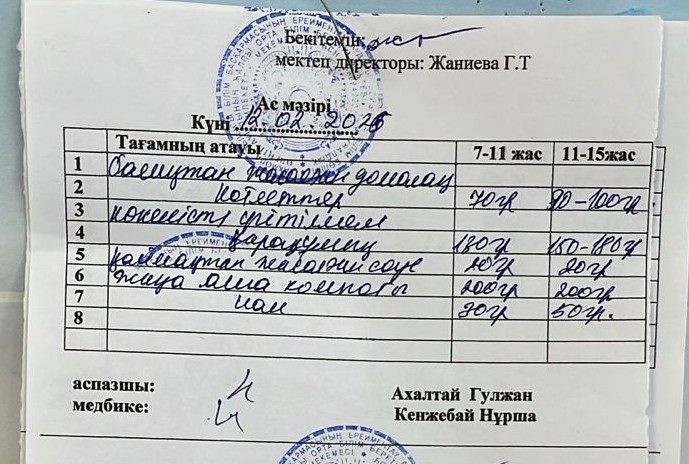 Бекітемін:
мектеп директоры: Жаниева Г.Т
Ас мәзірі
Күні 12.02.2025
Тағамның атауы 7-11 жас 11-15жас
1 жасалған домалақ
2 котлеттер 70гр 90-100гр
3 көкөніспен
4 қарақұмық 130гр 150-180гр
5 жасалған 20гр 20гр
6 жаңа алма компоты 200гр 200гр
7 нан 30гр 50гр.
8
аспазшы: Ахалтай Гулжан
медбике: Кенжебай Нұрша